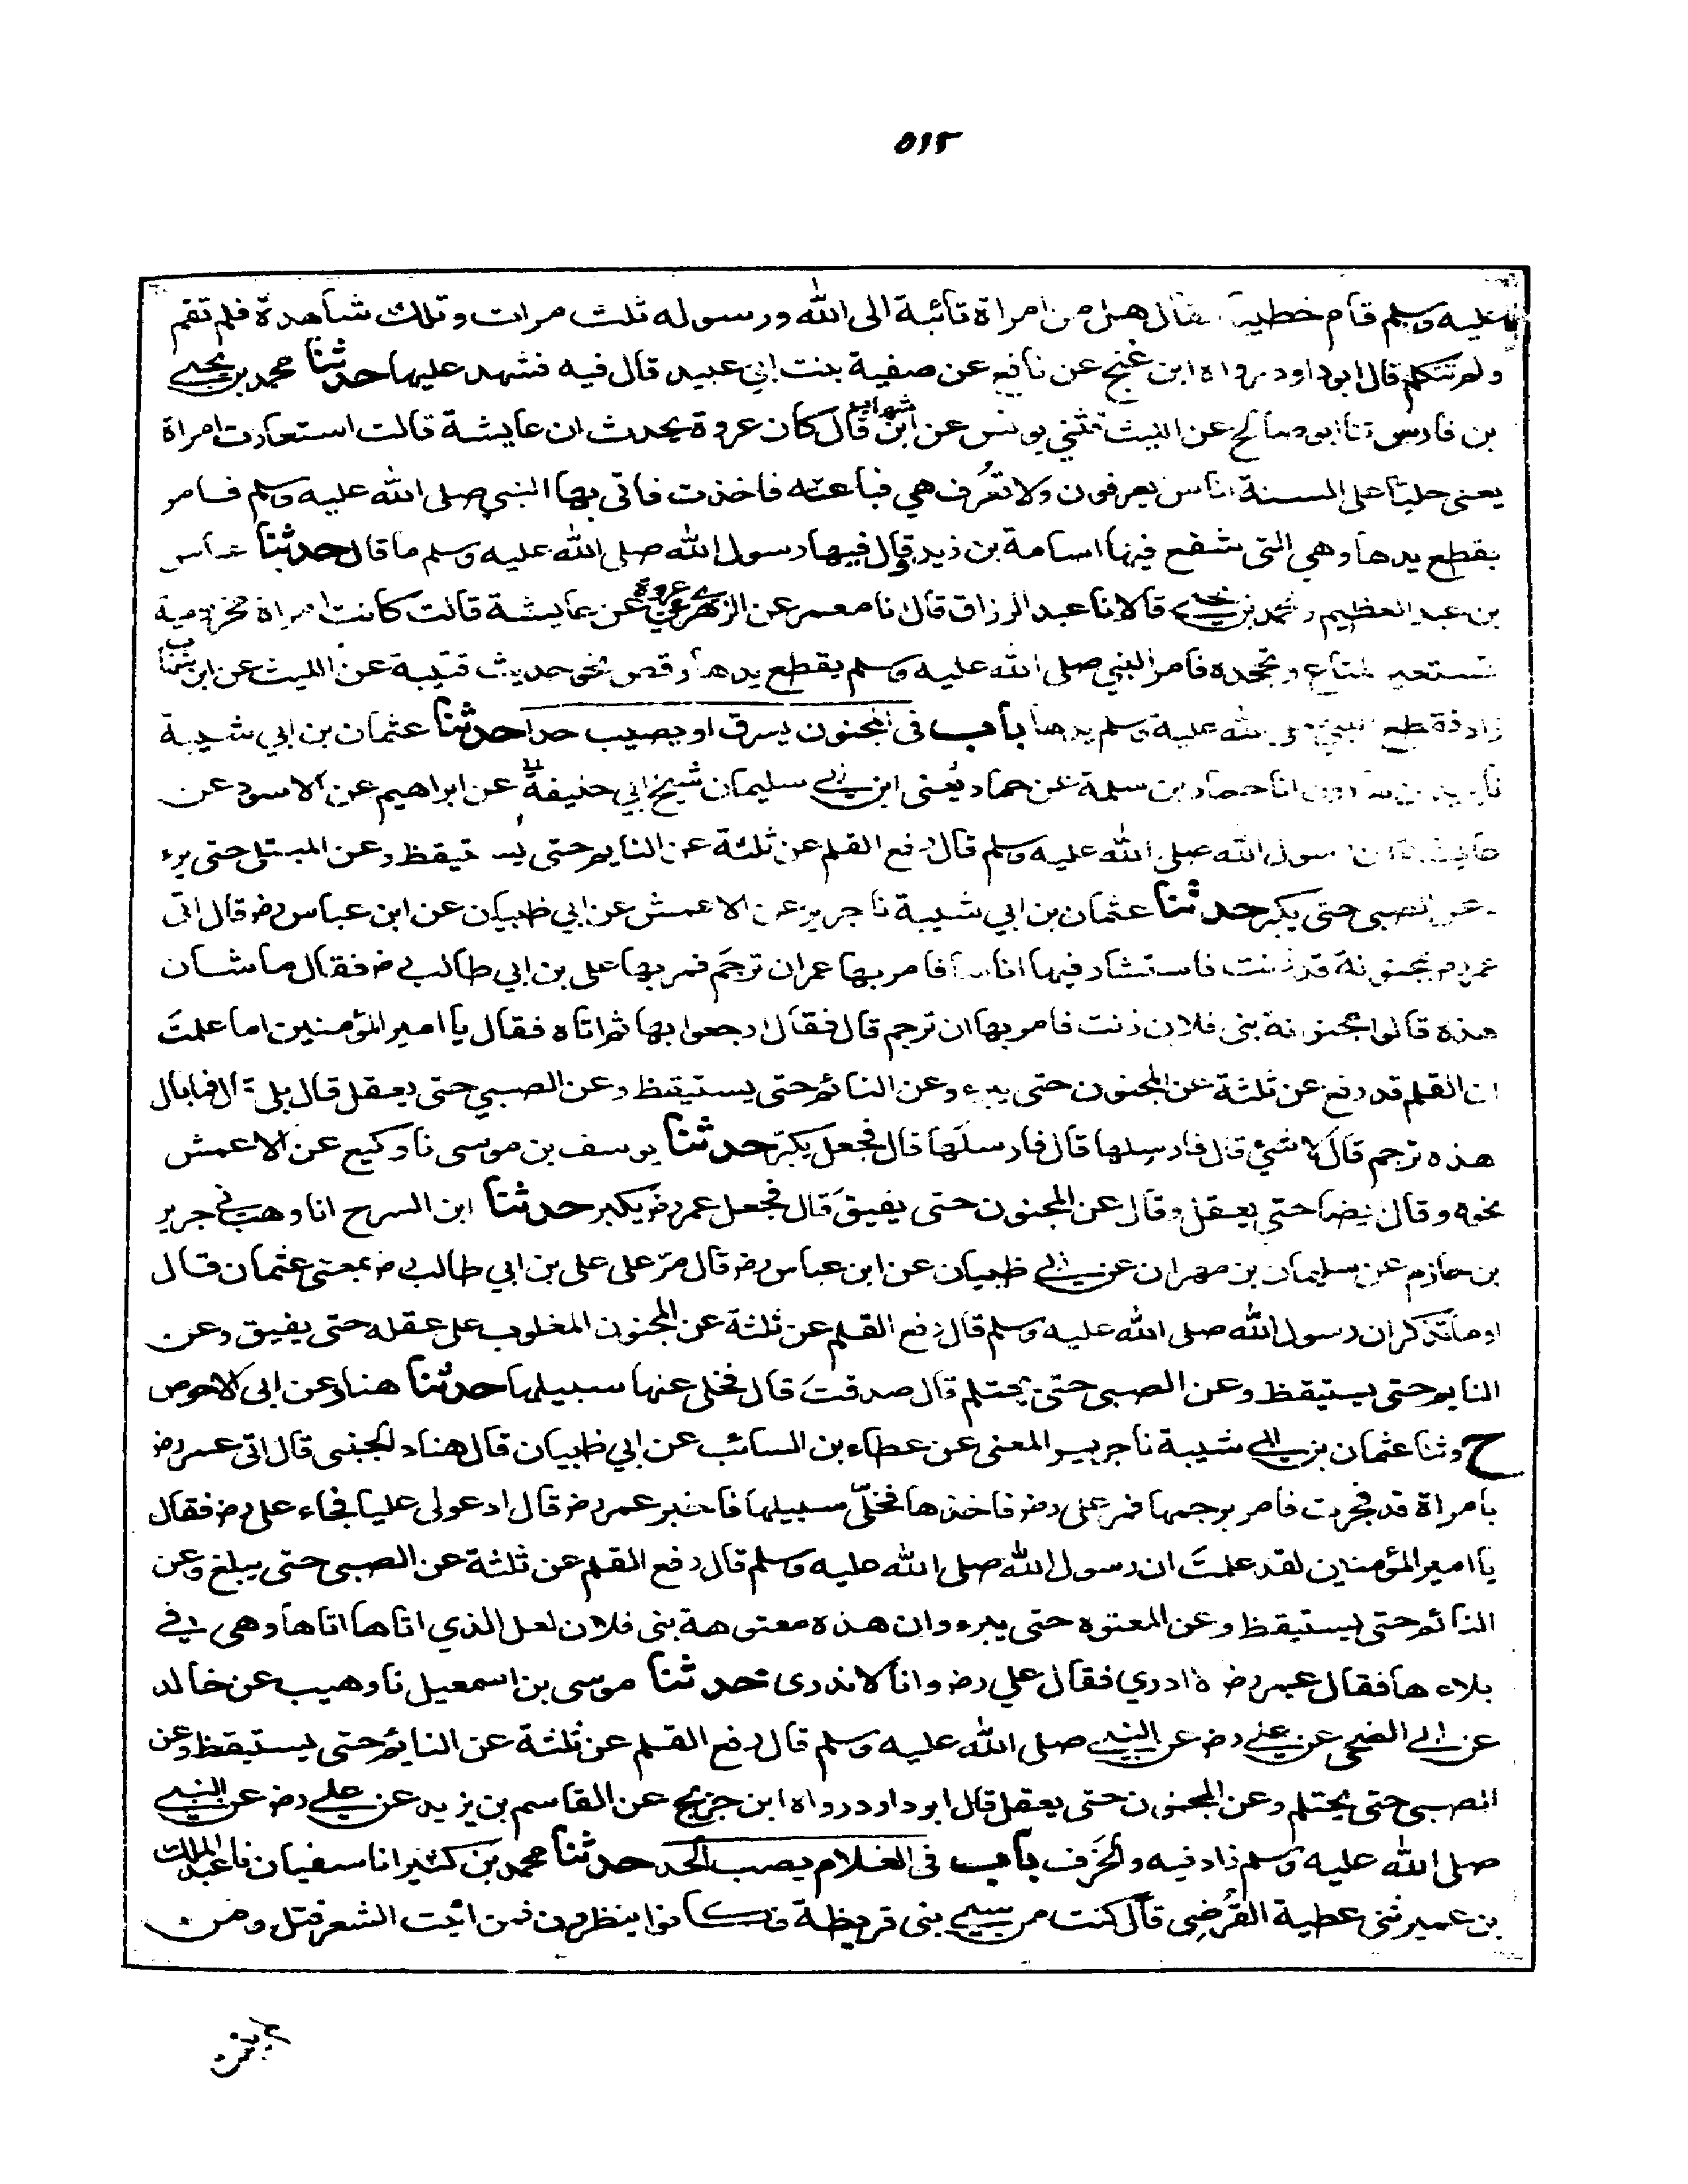 ٥١٢
عليه وسلم قام خطيبا فقال هل من امراة تائبة الى الله ورسوله ثلث مرات وتلك شاهدة فلم تقم
ولم تتكلم قال ابوداود رواه ابن غنج عن نافع عن صفية بنت ابي عبيد قال فيه فشهد عليها حدثنا محمد بن يحيى
بن فارس نا ابو صالح عن الليث ثني يونس عن ابن شهاب قال كان عروة يحدث ان عايشة قالت استعارت امراة
يعنى حليا على السنة اناس يعرفون ولا تُعرف هي فباعته فاخذت فاتى بها النبي صلى الله عليه وسلم فامر
بقطع يدها وهي التى شفع فيها اسامة بن زيد وقال فيها رسول الله صلى الله عليه وسلم ما قال حدثنا عباس
بن عبد العظيم ومحمد بن يحيى قالا نا عبد الرزاق قال انا معمر عن الزهري عن عروة عن عايشة قالت كانت امراة مخزومية
تستعير المتاع وتجحده فامر النبي صلى الله عليه وسلم بقطع يدها وقص نحو حديث قتيبة عن الليث عن ابن شهاب
زاد فقطع النبي صلى الله عليه وسلم يدها باب فى المجنون يسرق او يصيب حدا حدثنا عثمان بن ابي شيبة
نا يزيد بن هارون انا حماد بن سلمة عن حماد يُعنى ابن ابي سليمان شيخ ابي حنيفة عن ابراهيم عن الاسود عن
عايشة ان رسول الله صلى الله عليه وسلم قال رفع القلم عن ثلثة عن النايم حتى يستيقظ وعن المبتلى حتى برء
وعن الصبي حتى يكبر حدثنا عثمان بن ابي شيبة نا جرير عن الاعمش عن ابي ظبيان عن ابن عباس رض قال اتى
عمر رض بمجنونة قد زنت فاستشار فيها اناسا فامر بها عمران ترجَم فمر بها على بن ابي طالب رض فقال ما شان
هذه قالوا مجنونة بنى فلان زنت فامر بها ان ترجم قال فقال ارجعوا بها ثم اتاه فقال يا امير المؤمنين اما علمتَ
ان القلم قد رفع عن ثلثة عن المجنون حتى يبرء وعن النائم حتى يستيقظ وعن الصبي حتى يعقل قال بلى قال فما بال
هذه ترجم قال لا شئ قال فارسِلها قال فارسلَها قال فجعل يكبّر حدثنا يوسف بن موسى نا وكيع عن الاعمش
نحوه وقال ايضا حتى يعقل وقال عن المجنون حتى يفيقَ قال فجعل عمر رض يكبر حدثنا ابن السرح انا وهب ني جرير
بن حازم عن سليمان بن مهران عن ابي ظبيان عن ابن عباس رض قال مرّ على على بن ابي طالب رض بمعنى عثمان قال
اوما تذكر ان رسول الله صلى الله عليه وسلم قال رفع القلم عن ثلثة عن المجنون المغلوب على عقله حتى يفيق وعن
النايم حتى يستيقظ وعن الصبى حتى يحتلم قال صدقتَ قال فخلى عنها سبيلها حدثنا هناد عن ابى الاحوص
ح وثنا عثمان بن ابي شيبة نا جرير المعنى عن عطاء بن السائب عن ابي ظبيان قال هناد الجنبى قال اتى عمر رض
بامراة قد فجرت فامر برجمها فمر على رض فاخذها فخلّى سبيلها فاخبر عمر رض قال ادعوا لى عليا فجاء على رض فقال
يا امير المؤمنين لقد علمتَ ان رسول الله صلى الله عليه وسلم قال رفع القلم عن ثلثة عن الصبى حتى يبلغ وعن
النائم حتى يستيقظ وعن المعتوه حتى يبرء وان هذه معتوهة بنى فلان لعل الذي اتاها اتاها وهى في
بلاءها فقال عمر رض لا ادري فقال علي رض وانا لا ندرى حدثنا موسى بن اسمعيل نا وهيب عن خالد
عن ابي الضحى عن على رض عن النبي صلى الله عليه وسلم قال رفع القلم عن ثلثة عن النايم حتى يستيقظ وعن
الصبى حتى يحتلم وعن المجنون حتى يعقل قال ابو داود رواه ابن جريج عن القاسم بن يزيد عن على رض عن النبي
صلى الله عليه وسلم زاد فيه والخَرَف باب فى الغلام يصب الحد حدثنا محمد بن كثير انا سفيان نا عبد الملك
بن عمير ثنى عطية القُرضِى قال كنت من سبي بنى قريظة فكانوا ينظرون فمن انبت الشعر قتل ومن